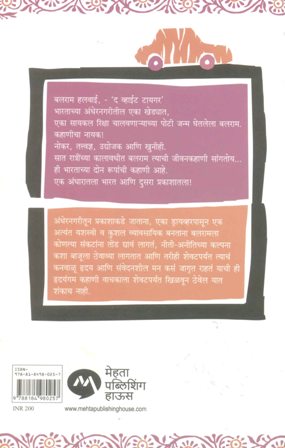 बलराम हलवाई, - 'द व्हाईट टायगर'
भारताच्या अंधेरनगरीतील एका खेड्यात,
एका सायकल रिक्षा चालवणाऱ्याच्या पोटी जन्म घेतलेला बलराम.
कहाणीचा नायक!
नोकर, तत्त्वज्ञ, उद्योजक आणि खुनीही.
सात रात्रींच्या कालावधीत बलराम त्याची जीवनकहाणी सांगतोय...
ही भारताच्या दोन रूपांची कहाणी आहे.
एक अंधारातला भारत आणि दुसरा प्रकाशातला!
अंधेरनगरीतून प्रकाशाकडे जाताना, एका ड्रायव्हरपासून एक
अत्यंत यशस्वी व कुशल व्यावसायिक बनताना बलरामला
कोणत्या संकटांना तोंड द्यावं लागतं, नीती-अनीतिच्या कल्पना
कशा बाजूला ठेवाव्या लागतात आणि तरीही शेवटपर्यंत त्याचं
कनवाळू हृदय आणि संवेदनशील मन कसं जागृत राहतं याची ही
हृदयंगम कहाणी वाचकाला शेवटपर्यंत खिळवून ठेवेल यात
शंकाच नाही.
ISBN-
978-81-8498-025-7
9 788184 980257
INR 200
मेहता
पब्लिशिंग
हाऊस
www.mehtapublishinghouse.com